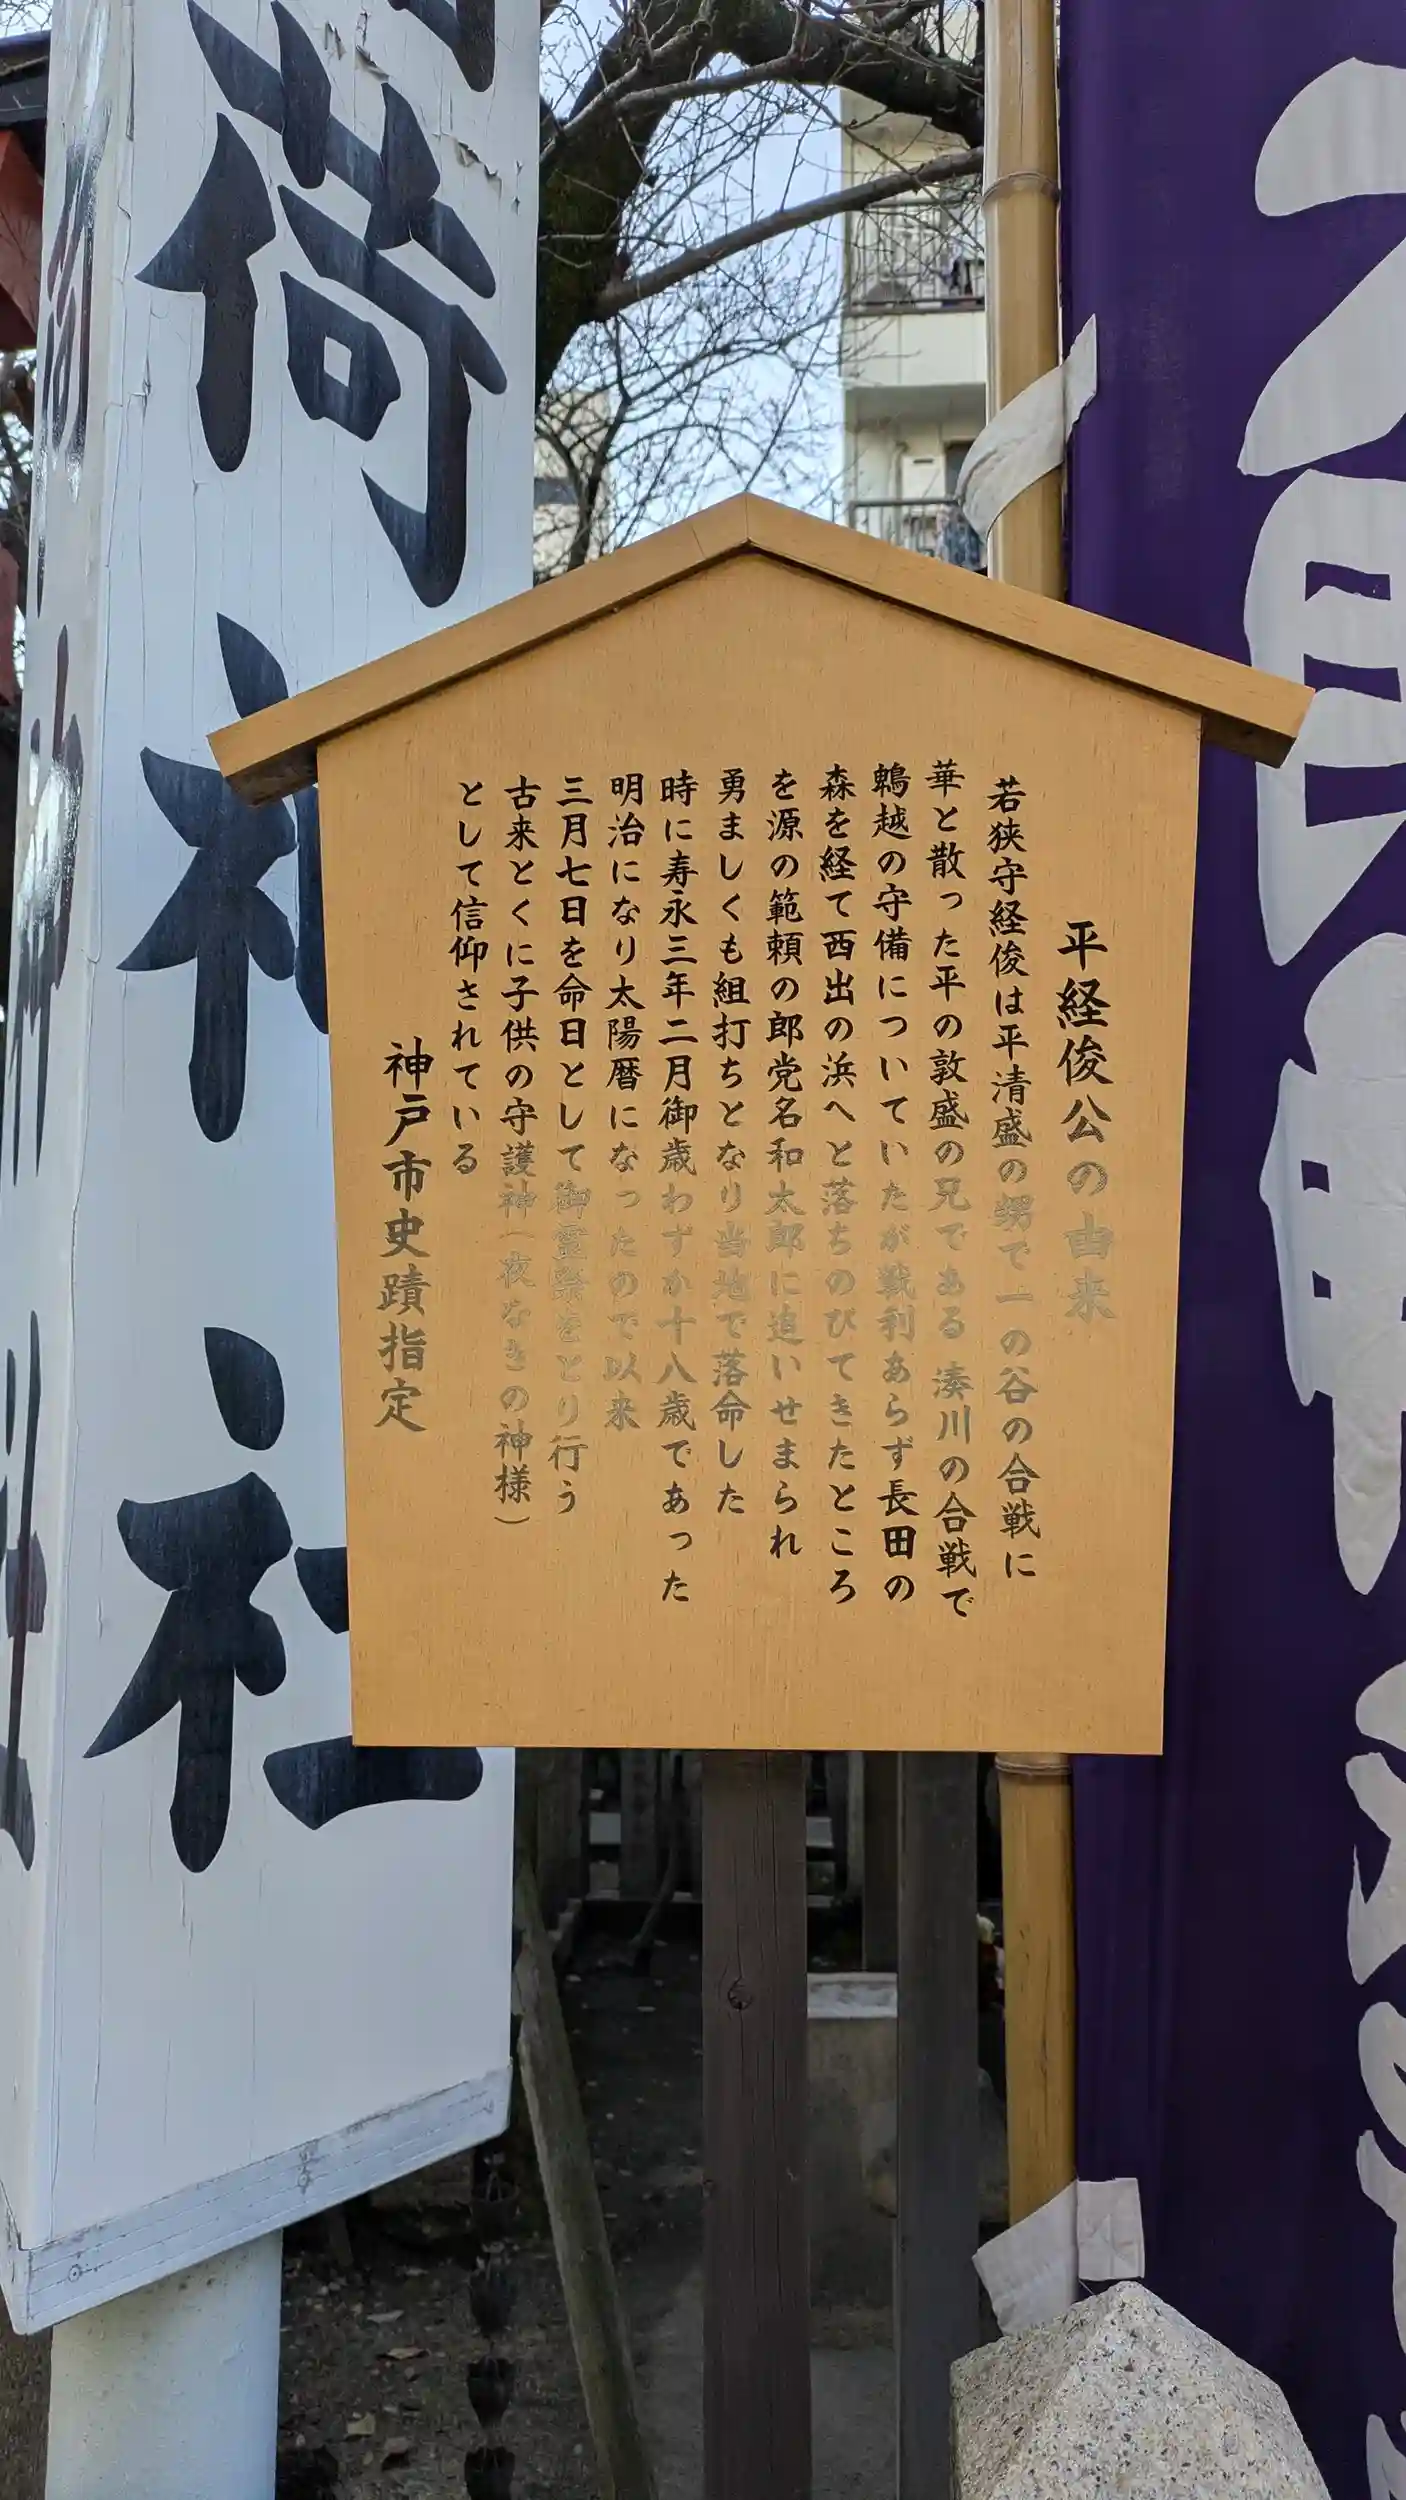 平経俊公の由来
若狭守経俊は平清盛の甥で一の谷の合戦に
華と散った平の敦盛の兄である 湊川の合戦で
鵯越の守備についていたが戦利あらず長田の
森を経て西出の浜へと落ちのびてきたところ
を源の範頼の郎党名和太郎に追いせまられ
勇ましくも組打ちとなり当地で落命した
時に寿永三年二月御歳わずか十八歳であった
明治になり太陽暦になったので以来
三月七日を命日として御霊祭をとり行う
古来とくに子供の守護神(夜なきの神様)
として信仰されている
神戸市史蹟指定
荷神社